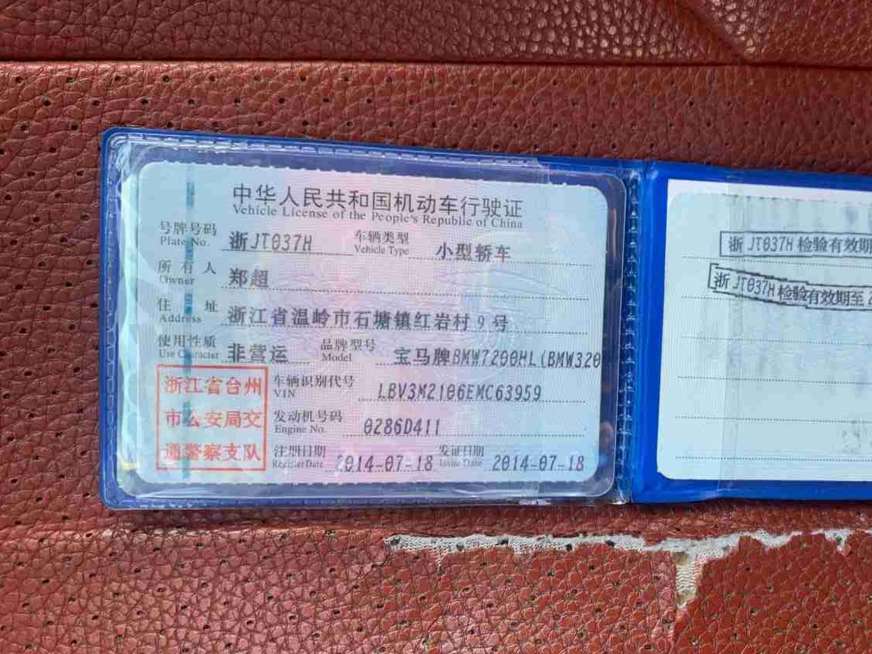 中华人民共和国机动车行驶证
Vehicle License of the People's Republic of China
号牌号码 浙JT037H 车辆类型 小型轿车
Plate No. Vehicle Type
所有人 郑超
Owner
住址 浙江省温岭市石塘镇红岩村9号
Address
使用性质 非营运 品牌型号 宝马牌BMW7200HL(BMW320
Use Character Model
车辆识别代号 LBV3M2106EMC63959
VIN
发动机号码 0286D411
Engine No.
注册日期 2014-07-18 发证日期 2014-07-18
Register Date Issue Date
浙江省台州
市公安局交
通警察支队
浙JT037H检验有效期
浙JT037H检验有效期至2